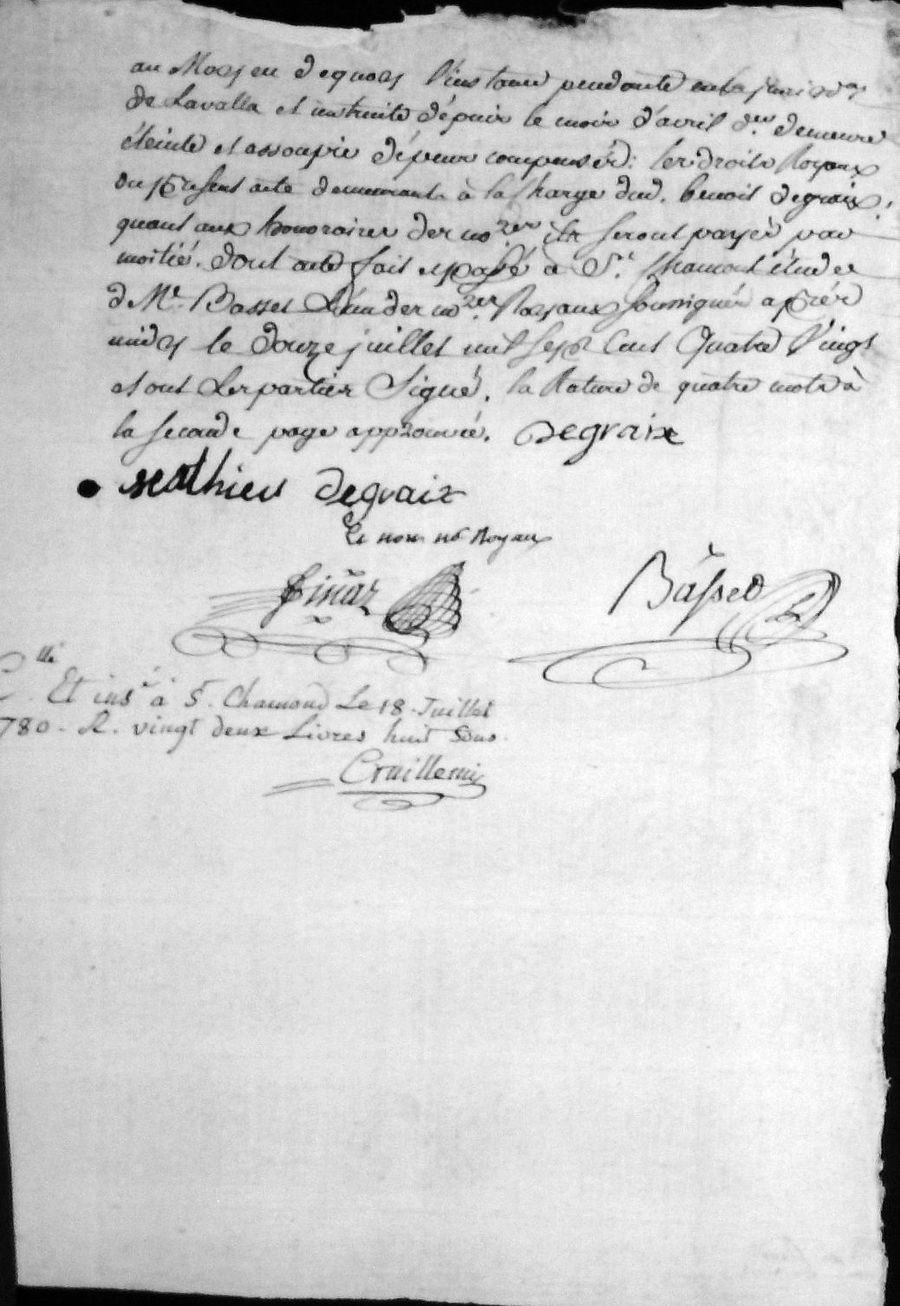 au Moyen dequoy l'instance pendante en la jurisd.on
de Lavalla et instruite dépuis le mois d'avril d.er demeure
éteinte et assoupie dépens compensés; les droits Royaux
du présent acte demeurants à la Charge dud. benoit degraix,
quant aux honoraires des no.res ils seront payés par
moitié. dont acte fait et passé à S.t Chamond étude de
d M.e Basset L'un des no.res Royaux soussignés après
midy le douze juillet mil sept Cent Quatre Vingt
et ont Les parties Signé. la Rature de quatre mots à
la seconde page approuvée. Degraix
Mathieu Degraix
Et nous no.res Royaux
Finaz
Basset
C.llé Et ins.é à S.t Chamond Le 18. Juillet
780. R. vingt deux Livres huit Sous.